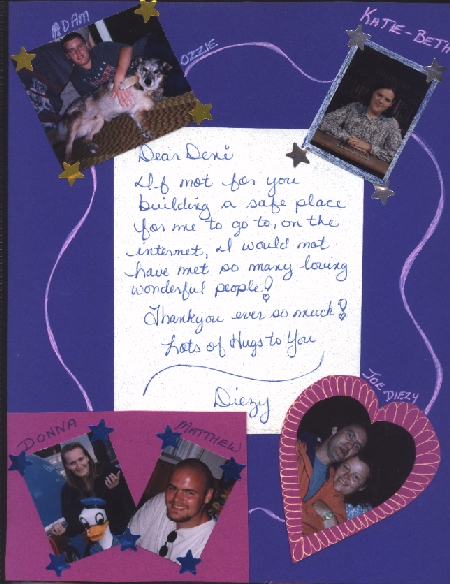 ADAM
OZZIE
KATIE-BETH
Dear Deni
If not for you
building a safe place
for me to go to, on the
internet, I would not
have met so many loving
wonderful people!
Thankyou ever so much!
Lots of Hugs to You
Diezy
JOE DIEZY
DONNA
MATTHEW